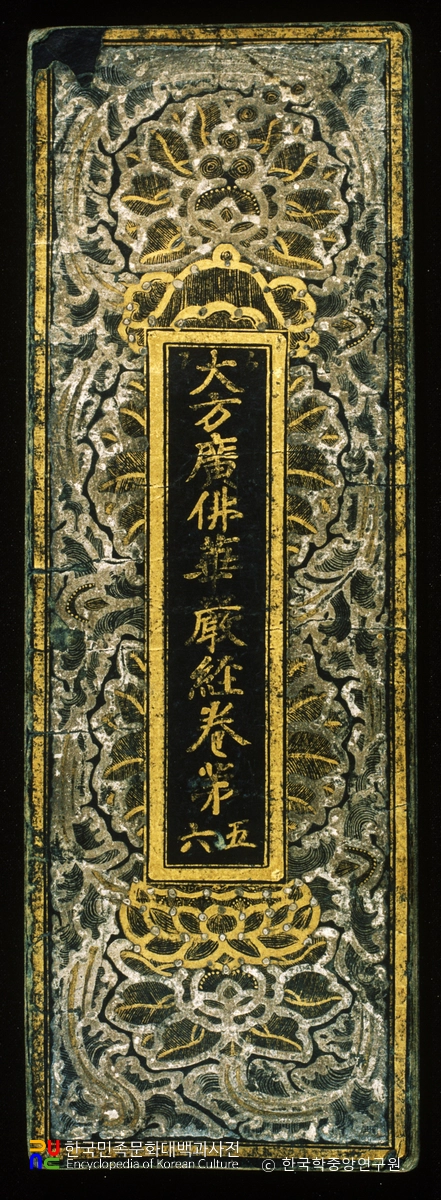 大方廣佛華嚴経卷苐
五六
한국민족문화대백과사전
Encyclopedia of Korean Culture
© 한국학중앙연구원